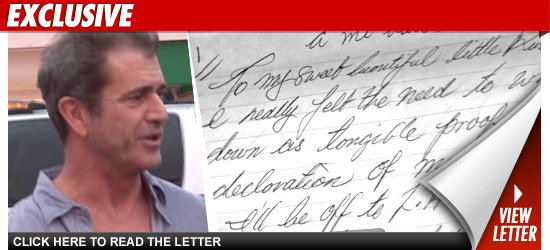 EXCLUSIVE
a me
1)
To my sweet beautiful little
I really felt the need to
down as tangible proof
declaration of m
I'll be off to
CLICK HERE TO READ THE LETTER
VIEW
LETTER